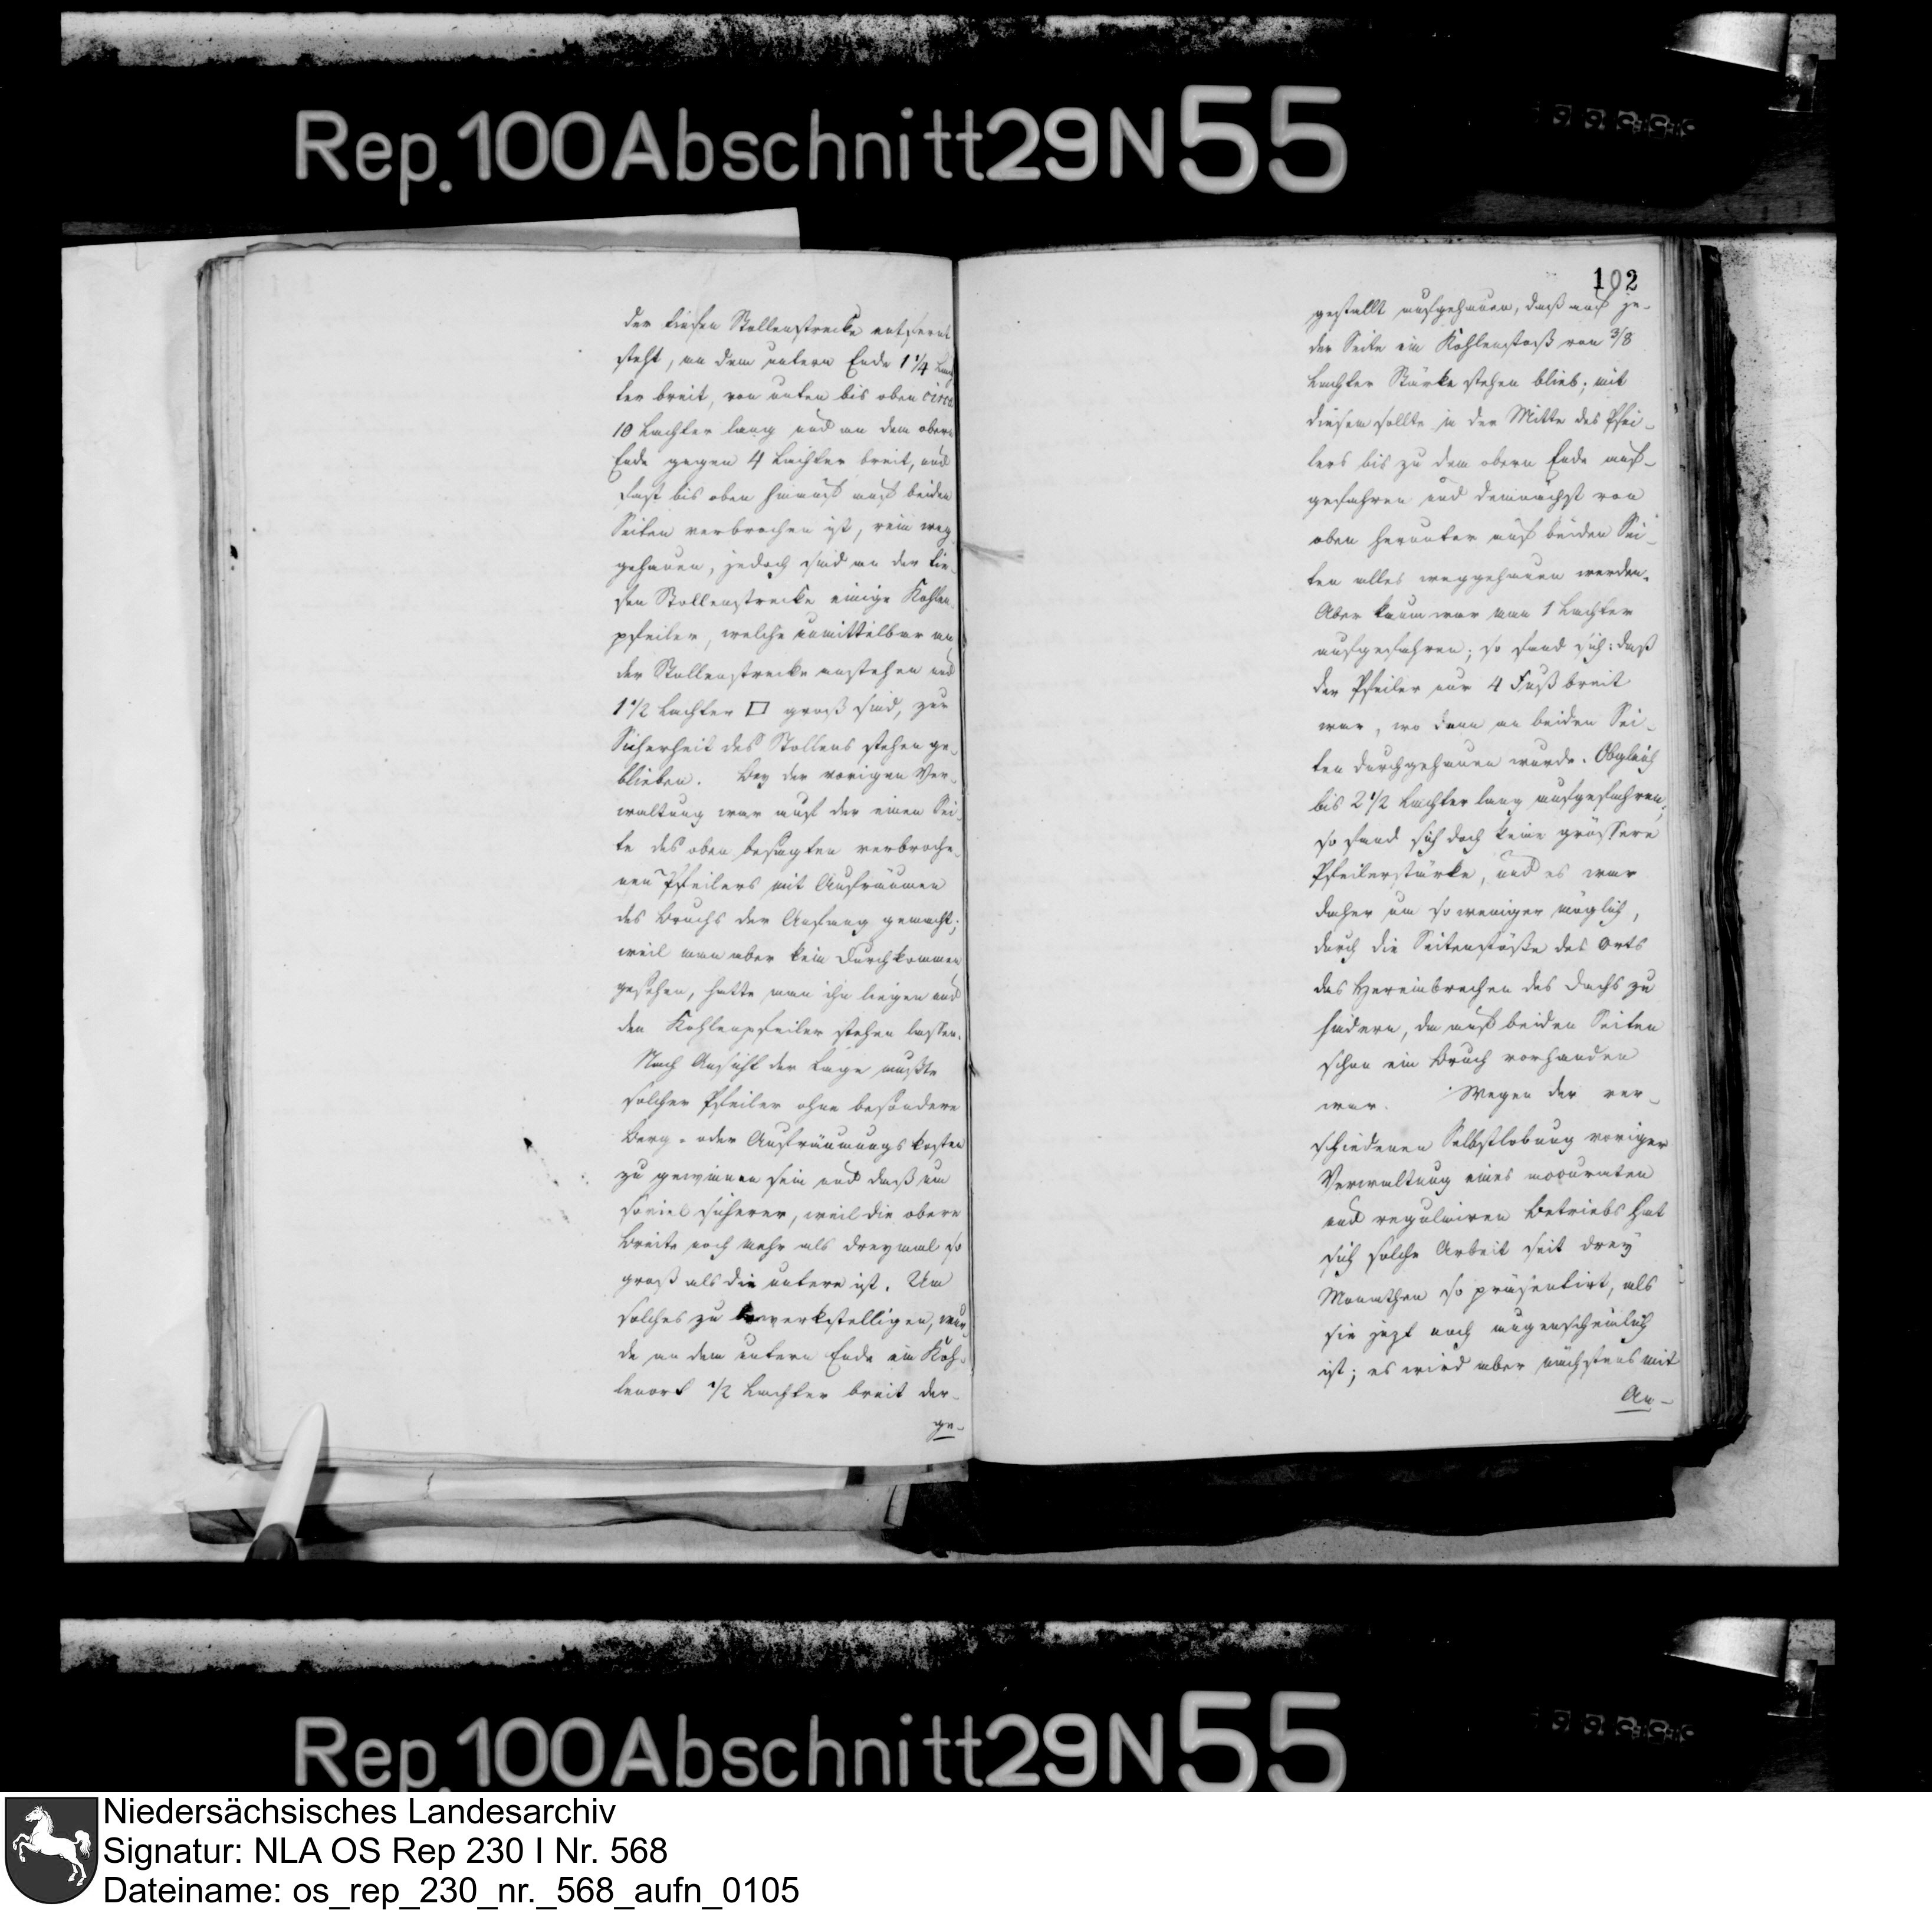 Rep. 100 Abschnitt 29 N 55
der tiefen Stollenstrecke entfernt
steht, an dem untern Ende 1 1/4 Lach
ter breit, von unten bis oben circa
10 Lachter lang und an dem obern
Ende gegen 4 Lachter breit, und
fast bis oben hinauf auf beiden
Seiten verbrochen ist, rein weg
gehauen, jedoch sind an der tie-
fen Stollenstrecke einige Kohlen-
pfeiler, welche unmittelbar an
der Stollenstrecke anstehen und
1 1/2 Lachter □ groß sind, zur
Sicherheit des Stollens stehen ge-
blieben. Bey der vorigen Ver-
waltung war auf der einen Sei-
te des oben besagten verbroche-
nen Pfeilers mit Aufräumen
des Bruchs der Anfang gemacht;
weil man aber kein Durchkommen
gesehen, hatte man ihn liegen und
den Kohlenpfeiler stehen lassen.
Nach Ansicht der Lage mußte
solcher Pfeiler ohne besondere
Berg- oder Aufräumungskosten
zu gewinnen sein und daß um
soviel sicherer, weil die obere
Breite noch mehr als dreymal so
groß als die untere ist. Um
solches zu bewerkstelligen, wur
de an dem untern Ende ein Koh-
lenort 1/2 Lachter breit der-
ge-
102
gestallt aufgehauen, daß auf je-
der Seite ein Kohlenstoß von 3/8
Lachter Stärke stehen blieb; mit
diesem sollte in der Mitte des Pfei-
lers bis zu dem obern Ende auf-
gefahren und demnächst von
oben herunter auf beiden Sei-
ten alles weggehauen werden.
Aber kaum war man 1 Lachter
aufgefahren; so fand sich: daß
der Pfeiler nur 4 Fuß breit
war, wo dann an beiden Sei-
ten durchgehauen wurde. Obgleich
bis 2 1/2 Lachter lang aufgefahren,
so fand sich doch keine grössere
Pfeilerstärke, und es war
daher um so weniger möglich,
durch die Seitenstöße des Orts
das Hereinbrechen des Dachs zu
hindern, da auf beiden Seiten
schon ein Bruch vorhanden
war. Wegen der ver-
schiedenen Selbstlobung voriger
Verwaltung eines accuraten
und regulairen Betriebs hat
sich solche Arbeit seit drey
Monathen so präsentirt, als
sie jezt noch augenscheinlich
ist; es wird aber nächstens mit
An-
Rep. 100 Abschnitt 29 N 55
Niedersächsisches Landesarchiv
Signatur: NLA OS Rep 230 I Nr. 568
Dateiname: os_rep_230_nr._568_aufn_0105